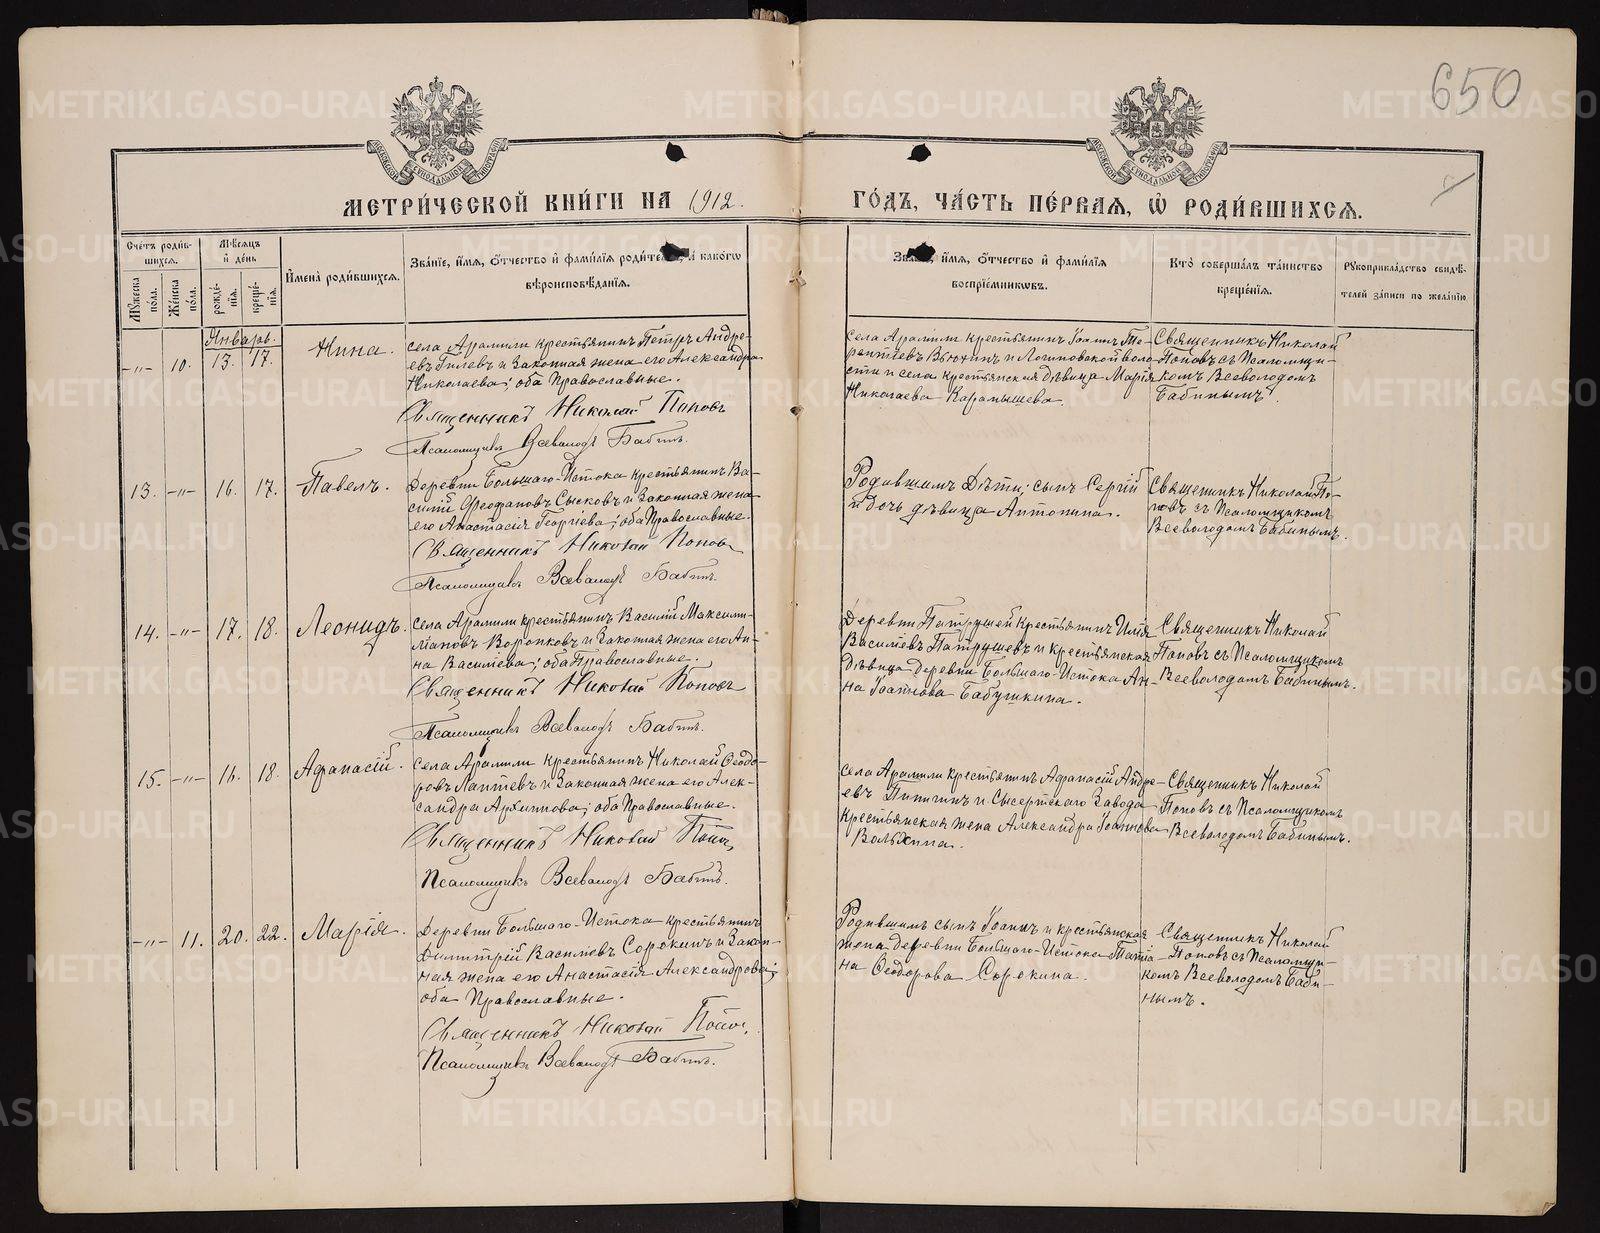 650
МЕТРИ́ЧЕСКОЙ КНИ́ГИ НА 1912.
ГО́ДЪ, ЧА́СТЬ ПЕ́РВАЯ, Ѡ РОДИ́ВШИХСЯ.
Сче́тъ роди́в-
шихся.
Му́жеска по́ла.
Же́нска по́ла.
Мѣ́сяцъ
и҆ де́нь
рожде́-
нія.
креще́-
нія.
И҆мена̀ роди́вшихся.
Зва́ніе, и҆́мя, ѻ҆́тчество и҆ фами́лія роди́телей, и҆ како́гѡ
вѣроисповѣ́данія.
Зва́ніе, и҆́мя, ѻ҆́тчество и҆ фами́лія
воспріе́мниковъ.
Кто̀ соверша́лъ та́инство
креще́нія.
Рꙋкоприкла́дство свидѣ́-
телей за́писи по жела́нію.
Январь.
-"- 10. 13. 17.
Нина.
Села Арамили крестьянинъ Петръ Андре-
евъ Гилевъ и законная жена его Александра
Николаева; оба Православные.
Священникъ Николай Поповъ
Псаломщикъ Всеволодъ Бабинъ.
Села Арамили крестьянинъ Іоаннъ Те-
рентіевъ Вьюхинъ и Логиновской воло-
сти и села крестьянская дѣвица Марія
Николаева Карапышева.
Священникъ Николай
Поповъ съ Псаломщи-
комъ Всеволодомъ
Бабинымъ.
13. -"- 16. 17.
Павелъ.
Деревни Большаго-Истока крестьянинъ Ва-
силій Ѳеофановъ Сысковъ и законная жена
его Анастасія Георгіева; оба Православные.
Священникъ Николай Поповъ
Псаломщикъ Всеволодъ Бабинъ.
Родившимъ Дѣти: сынъ Сергій
и дочь дѣвица Антонина.
Священникъ Николай По-
повъ съ Псаломщикомъ
Всеволодомъ Бабинымъ.
14. -"- 17. 18.
Леонидъ.
Села Арамили крестьянинъ Василій Максими-
ліановъ Воронковъ и законная жена его Ан-
на Василіева; оба Православные.
Священникъ Николай Поповъ
Псаломщикъ Всеволодъ Бабинъ.
Деревни Патрушей крестьянинъ Илія
Василіевъ Патрушевъ и крестьянская
дѣвица деревни Большаго-Истока Ан-
на Іоаннова Бабушкина.
Священникъ Николай
Поповъ съ Псаломщикомъ
Всеволодомъ Бабинымъ.
15. -"- 16. 18.
Аѳанасій.
Села Арамили крестьянинъ Николай Ѳеодо-
ровъ Лаптевъ и законная жена его Алек-
сандра Архиппова; оба Православные.
Священникъ Николай Поповъ
Псаломщикъ Всеволодъ Бабинъ.
Села Арамили крестьянинъ Аѳанасій Андре-
евъ Папигинъ и Сысертскаго Завода
крестьянская жена Александра Іоаннова
Вольхина.
Священникъ Николай
Поповъ съ Псаломщикомъ
Всеволодомъ Бабинымъ.
-"- 11. 20. 22.
Марія.
Деревни Большаго-Истока крестьянинъ
Димитрій Василіевъ Сорокинъ и Закон-
ная жена его Анастасія Александрова;
оба Православные.
Священникъ Николай Поповъ
Псаломщикъ Всеволодъ Бабинъ.
Родившимъ сынъ Іоаннъ и крестьянская
жена деревни Большаго-Истока Татіа-
на Ѳеодорова Сорокина.
Священникъ Николай
Поповъ съ Псаломщи-
комъ Всеволодомъ Баби-
нымъ.